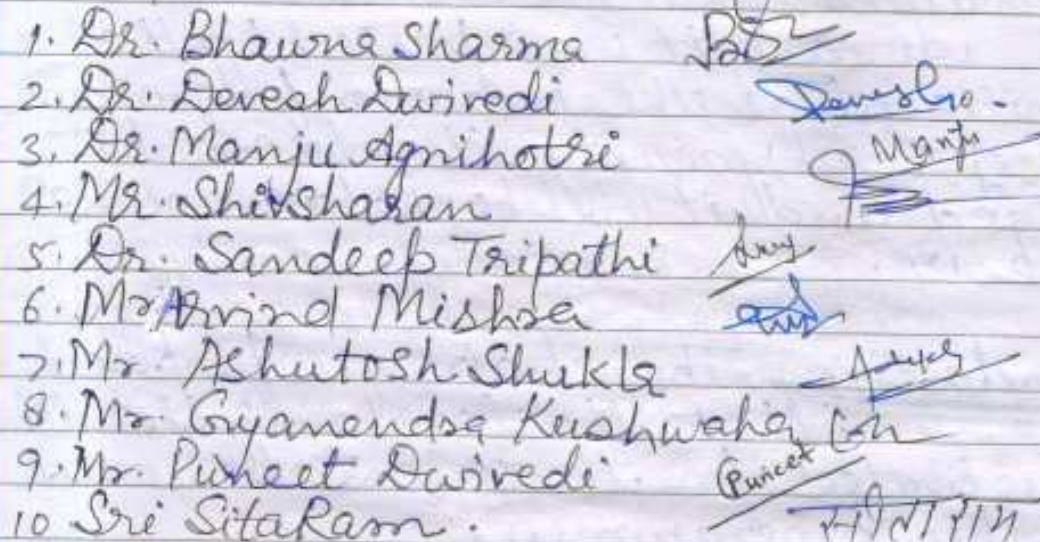 1. Dr. Bhawna Sharma
2. Dr. Devesh Dwivedi Devesh
3. Dr. Manju Agnihotri Manju
4. Mr. Shivsharan
5. Dr. Sandeep Tripathi
6. Mr Arvind Mishra
7. Mr. Ashutosh Shukla
8. Mr. Gyanendra Kushwaha
9. Mr. Puneet Dwivedi Puneet
10 Sri SitaRam. सीताराम